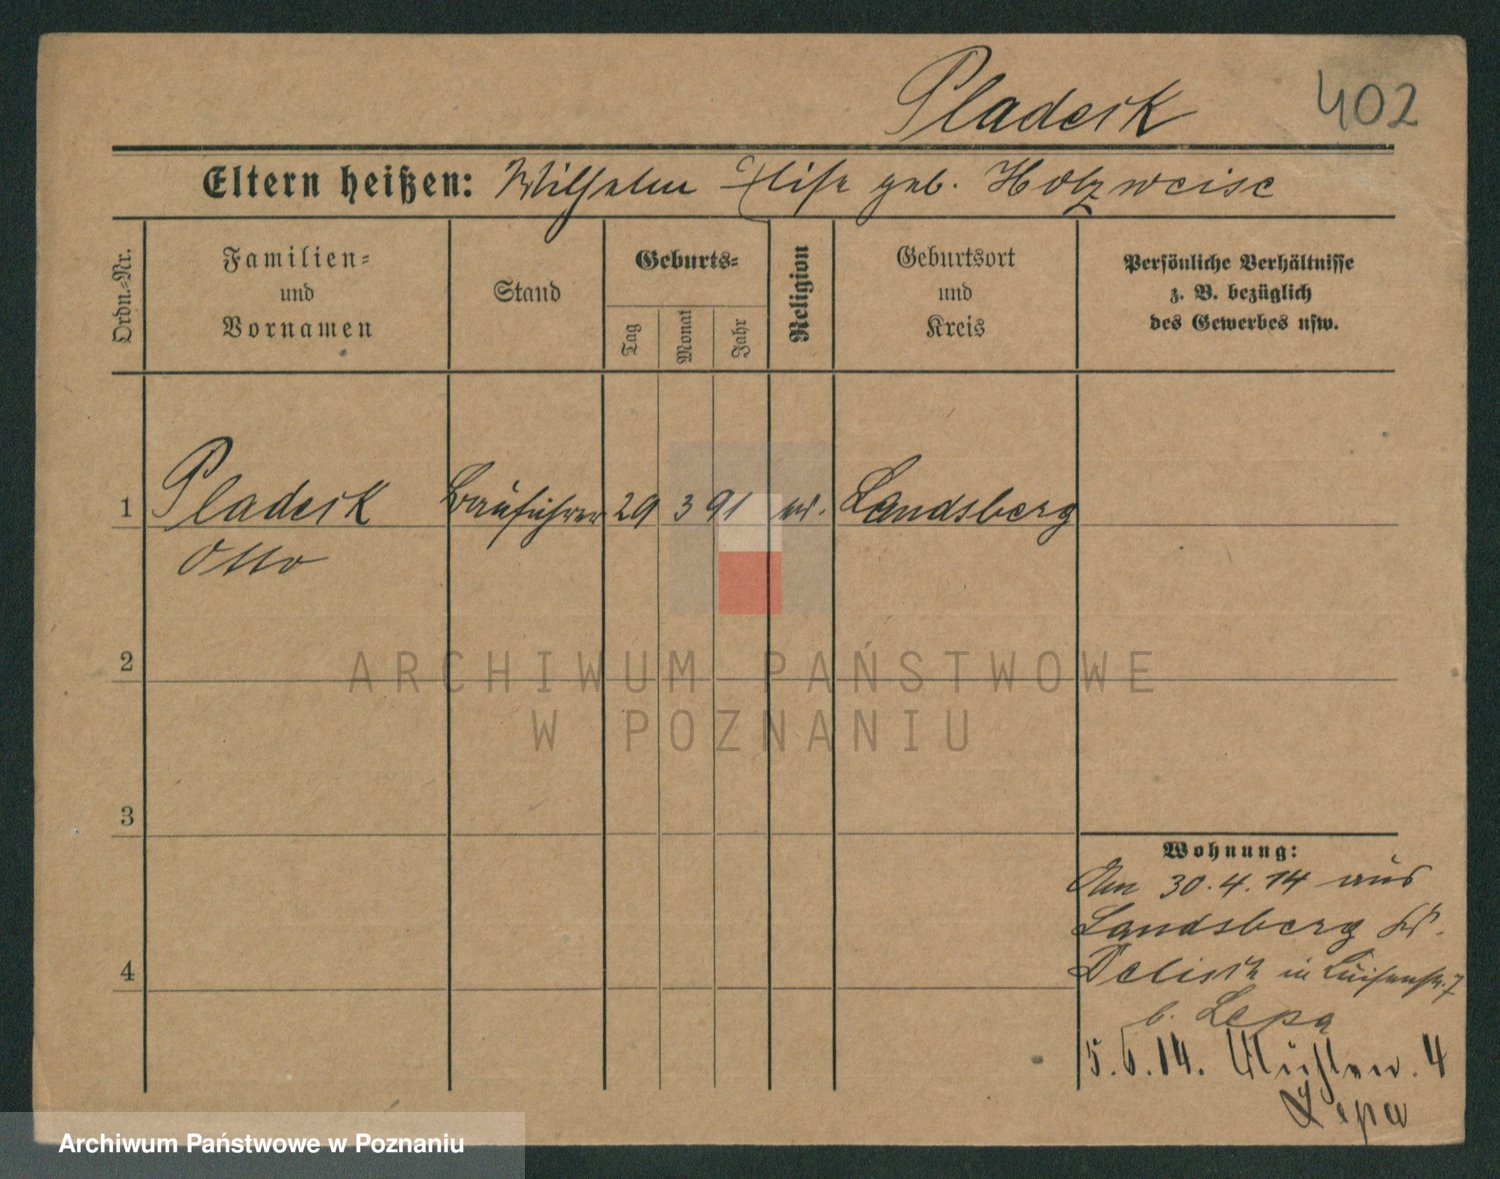 402
Pladeck
Eltern heißen: Wilhelm Elise geb. Holzweise
Ordn.-Nr.
Familien-
und
Vornamen
Stand
Geburts-
Tag
Monat
Jahr
Religion
Geburtsort
und
Kreis
Persönliche Verhältnisse
z. B. bezüglich
des Gewerbes usw.
1 Pladeck Bauführer 29 3 91 ev. Landsberg
Otto
2
3
4
Wohnung:
Am 30.4.14 aus
Landsberg Kr.
in Luisenstr. 7
b. Lepa
5.6.14. Mühlen. 4
Lepa
ARCHIWUM PAŃSTWOWE
W POZNANIU
Archiwum Państwowe w Poznaniu